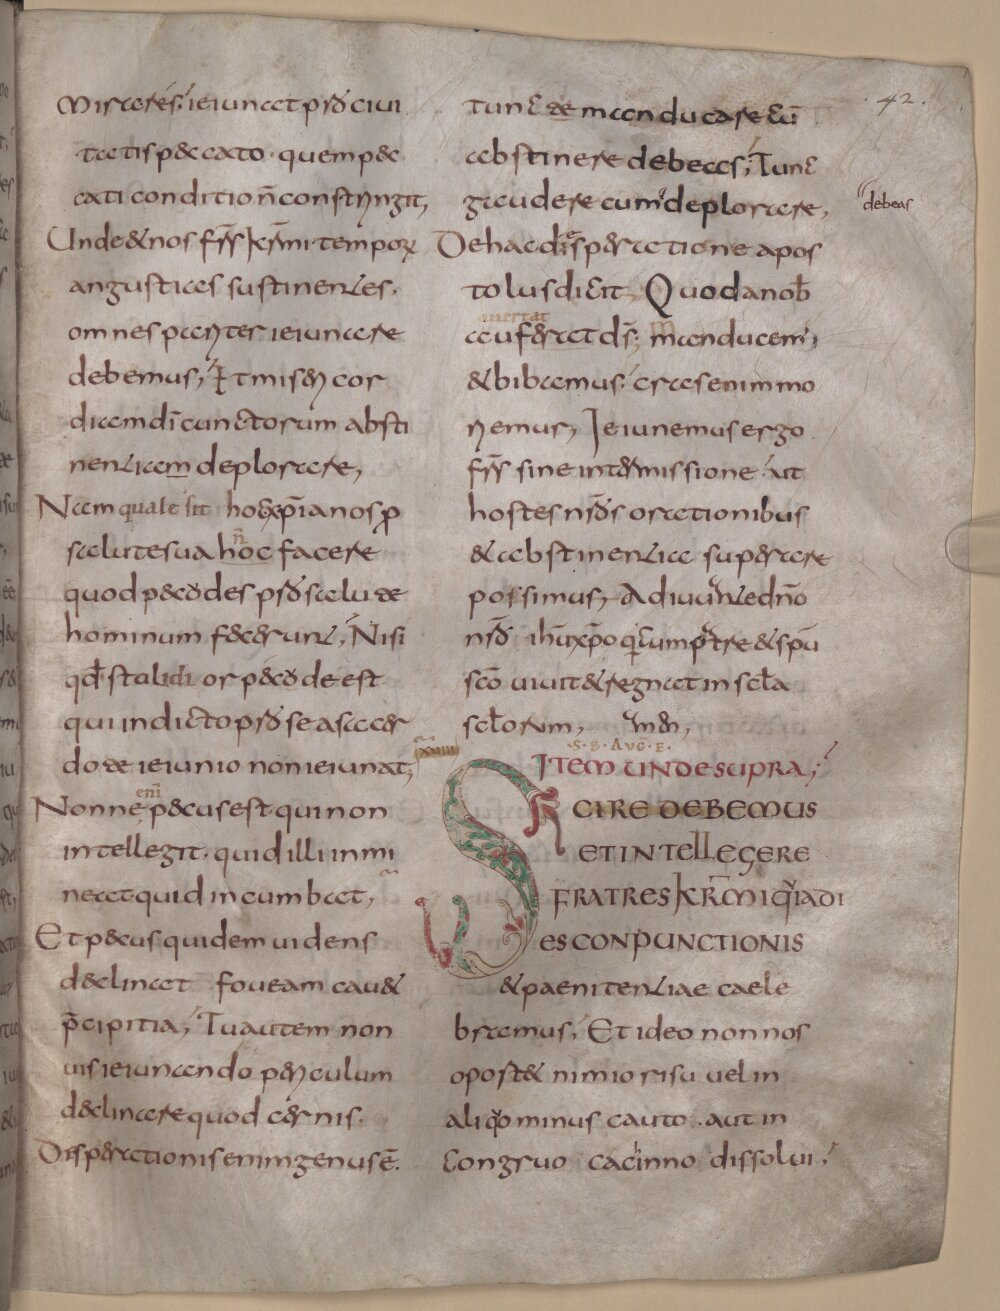 miseret; ieiunat pro ciui
tatis peccato. quem pec
cati conditio non constringit,
Unde et nos frs krmi tempore
angustiaes sustinentes.
omnes pariter ieiunare
debemus; Et misericor
diam di cunctorum absti
nentiam deplorare,
Nam quale sit hos xpianos p
salute sua hoc facere
n
quod pecodes pro salute
hominum fecerunt, Nisi
qd stolidior pecode est
qui indicto pro se a sacer
dote ieiunio non ieiunat;
Nonne pecus est qui non
eni
intellegit. quid illi inmi
neat quid incumbat,
Et pecus quidem uidens
declinat foueam cauet
pcipitia, Tu autem non
uis ieiunando periculum
declinare quod cernis.
Disperationis enim genus e.
42.
tunc te manducare cu
abstinere debeas; Tunc
debeas
gaudere cum deplorare,
De hac disperatione apos
tolus dicit, Quod a nob
auertat
auferat ds; Manducem,
et bibamus. cras enim mo
riemur, Ieiunemus ergo
frs sine intermissione. ut
hostes nros orationibus
et abstinentia superare
possimus, Adiuuante dno
nro ihu xpo qui cum patre et spu
sco uiuit et regnat in scla
sclorum, amen,
xuiiii
S. B. AUG. E.
ITEM UNDE SUPRA;
SCIRE DEBEMUS
ET INTELLEGERE
FRATRES KRMI QUIA DI
ES CONPUNCTIONIS
et paenitentiae caele
bramus, Et ideo non nos
oportet nimio risu uel in
aliquo minus cauto. aut in
congruo cacinno dissolui,